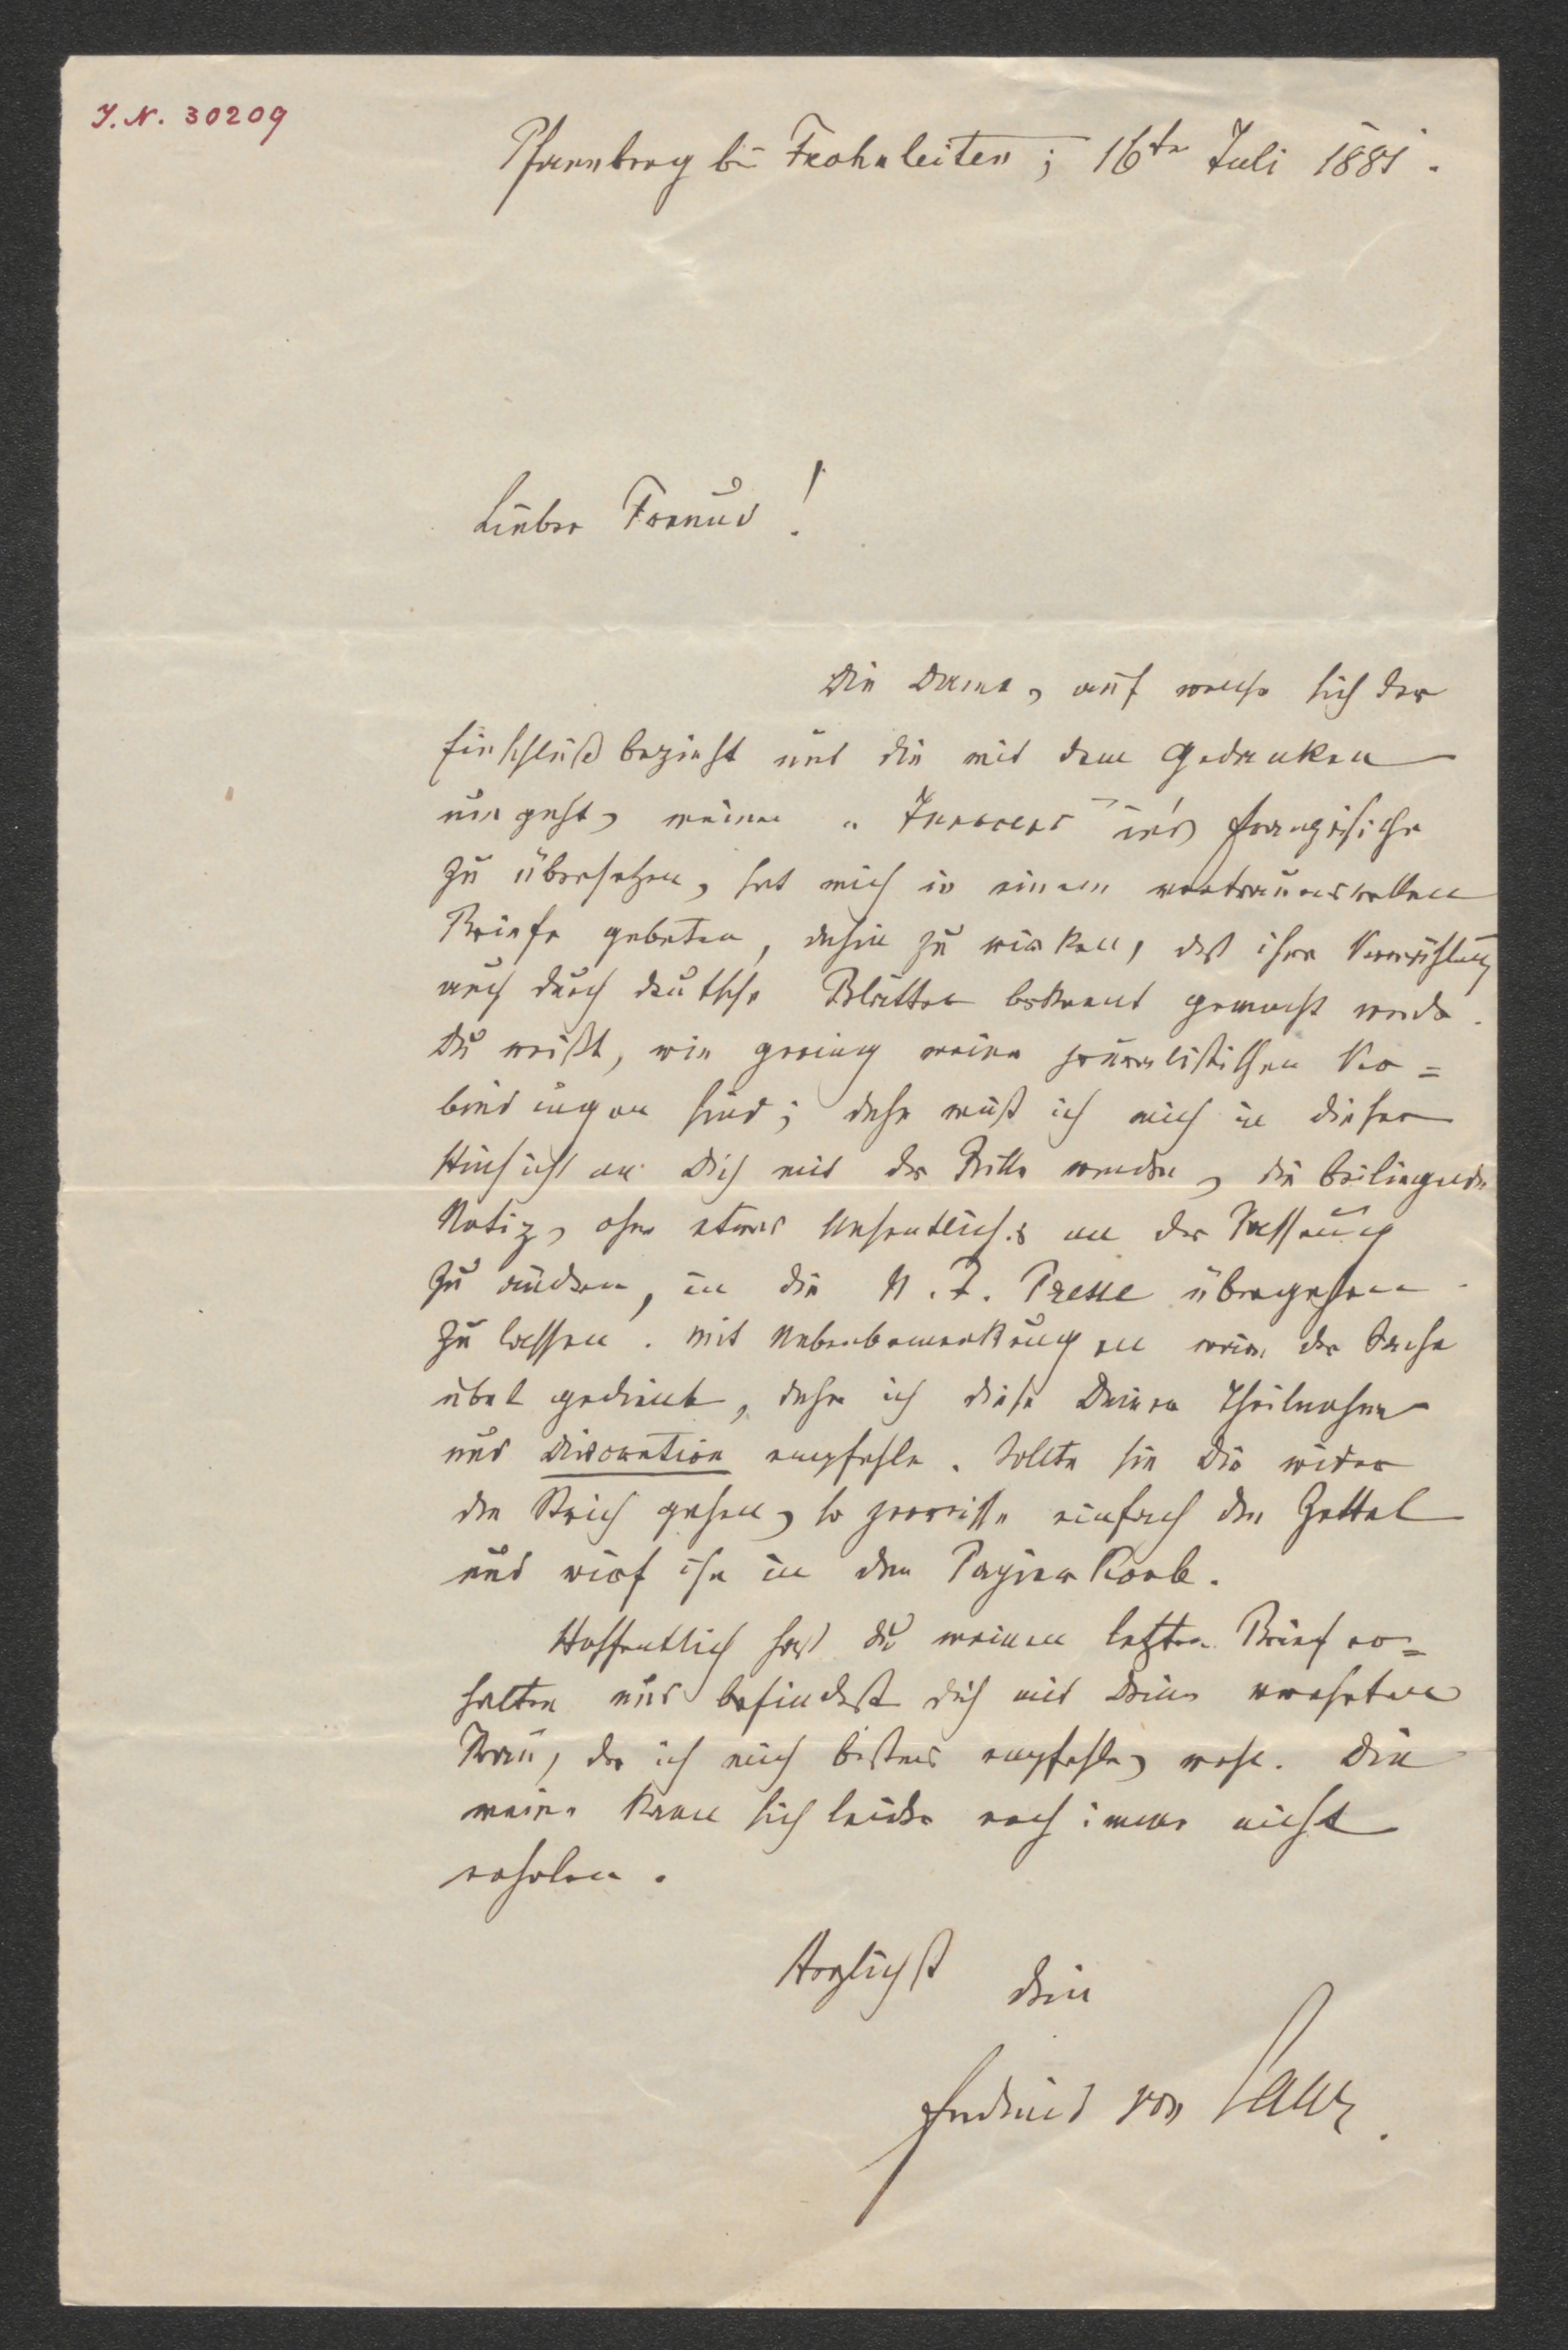 I. N. 30209
Pfannberg bei Frohnleiten; 16ten Juli 1881.
Lieber Freund!
Die Dame, auf welche sich der
Einschluß bezieht und die mit dem Gedanken
umgeht, meinen „Innocens" in's Französische
zu übersetzen, hat mich in einem vertrauensvollen
Briefe gebeten, dahin zu wirken, daß ihre Vermählung
auch durch deutsche Blätter bekannt gemacht werde.
Du weißt, wie gering meine journalistischen Ver=
bindungen sind; daher muß ich mich in dieser
Hinsicht an Dich mit der Bitte wenden, die beiliegende
Notiz, ohne etwas Wesentliches an der Fassung
zu ändern, in die N. F. Presse übergehen
zu lassen. Mit Nebenbemerkungen wäre der Sache
übel gedient, daher ich diese Deiner Theilnahme
und Discretion empfehle. Sollte sie Dir wider
den Strich gehen, so zerreisse einfach den Zettel
und wirf ihn in den Papierkorb.
Hoffentlich hast Du meinen letzten Brief er=
halten und befindest Dich mit Deiner verehrten
Frau, der ich mich bestens empfehle, wohl. Die
meine kann sich leider noch immer nicht
erholen.
Herzlichst Dein
Ferdinand von Saar.